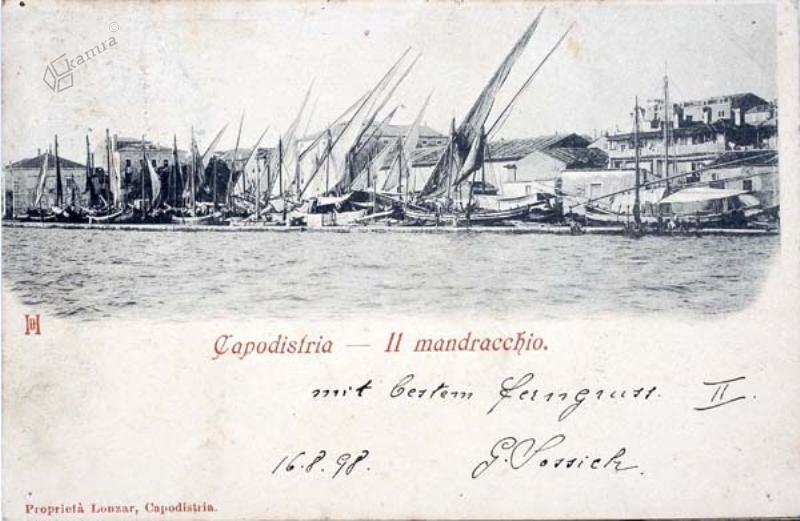 kamra©
Capodistria — Il mandracchio.
mit bestem Ferngruss. II.
16.8.98. G. Sossich.
Proprietà Lonzar, Capodistria.